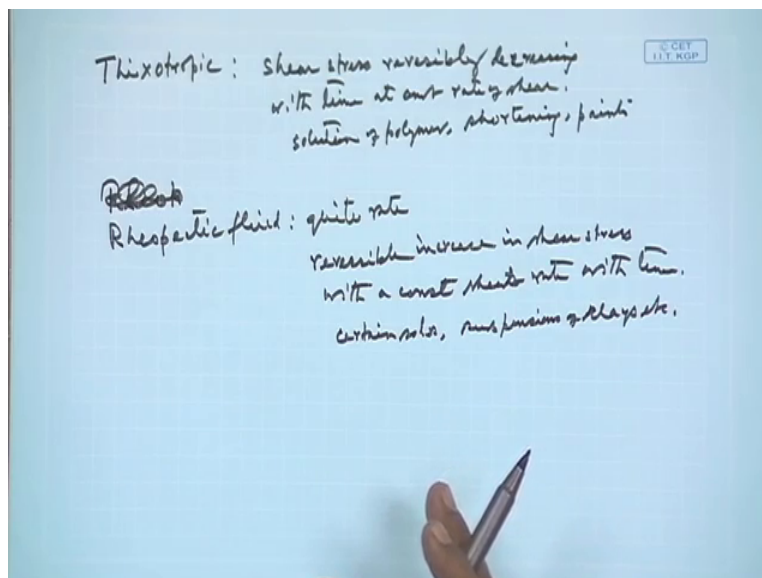 Thixotropic : shear stress reversibly decreasing
with time at const rate of shear.
solution of polymer, shortening, paints
Rheopectic fluid : quite rate
reversible increase in shear stress
with a const shear rate with time.
certain sols, suspensions of clays etc.
© CET
I.I.T. KGP